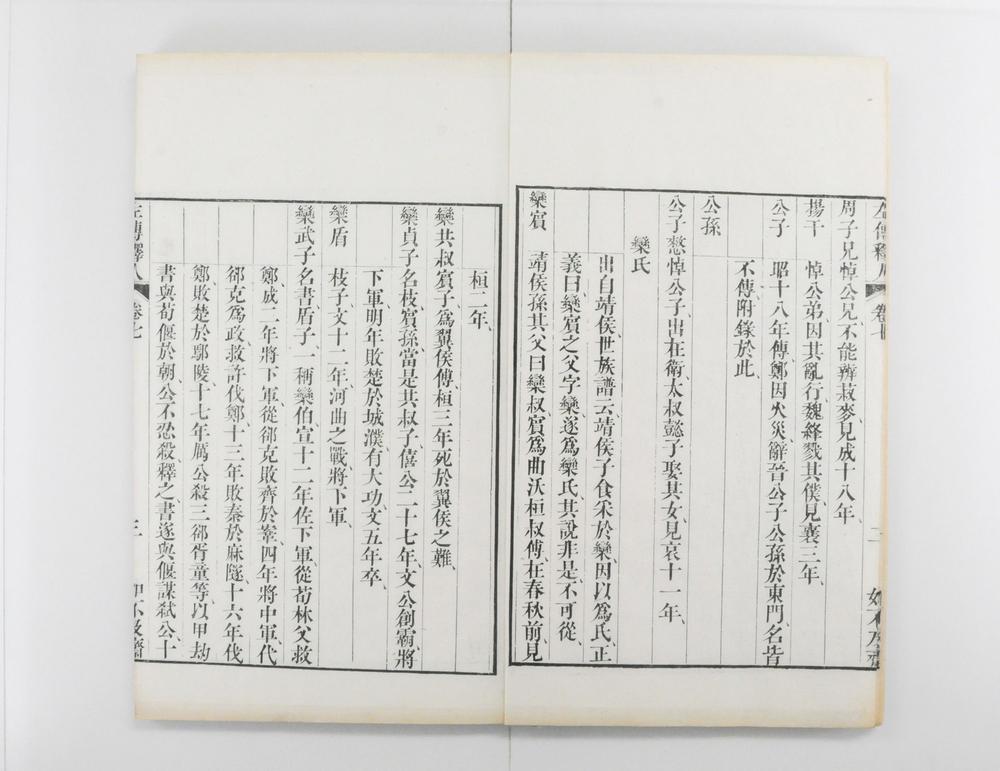 周子兄悼公兄不能辨菽麥見成十八年
揚干 悼公弟因其亂行魏絳戮其僕見襄三年
公子 昭十八年傳鄭因火災辭晉公子公孫於東門名皆
不傳附錄於此
公孫
公子憖悼公子出在衞太叔懿子娶其女見哀十一年
欒氏
出自靖侯世族譜云靖侯子食采於欒因以爲氏正
義曰欒賓之父字欒遂爲欒氏其說非是不可從
欒賓 靖侯孫其父曰欒叔賓爲曲沃桓叔傅在春秋前見
桓二年
欒共叔賓子爲翼侯傅桓三年死於翼侯之難
欒貞子名枝賓孫當是共叔子僖公二十七年文公創霸將
下軍明年敗楚於城濮有大功文五年卒
欒盾 枝子文十二年河曲之戰將下軍
欒武子名書盾子一稱欒伯宣十二年佐下軍從荀林父救
鄭成二年將下軍從郤克敗齊於鞌四年將中軍代
郤克爲政救許伐鄭十三年敗秦於麻隧十六年伐
鄭敗楚於鄢陵十七年厲公殺三郤胥童等以甲劫
書與荀偃於朝公不忍殺釋之書遂與偃謀弑公十
左傳釋人 卷七 三